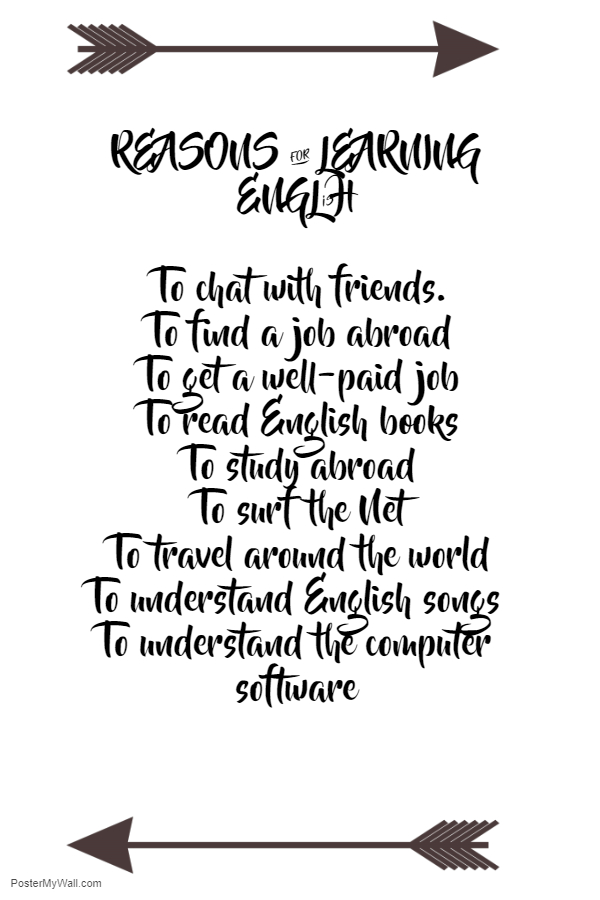 REASONS FOR LEARNING
ENGLisH
To chat with friends.
To find a job abroad
To get a well-paid job
To read English books
To study abroad
To surf the Net
To travel around the world
To understand English songs
To understand the computer
software
PosterMyWall.com